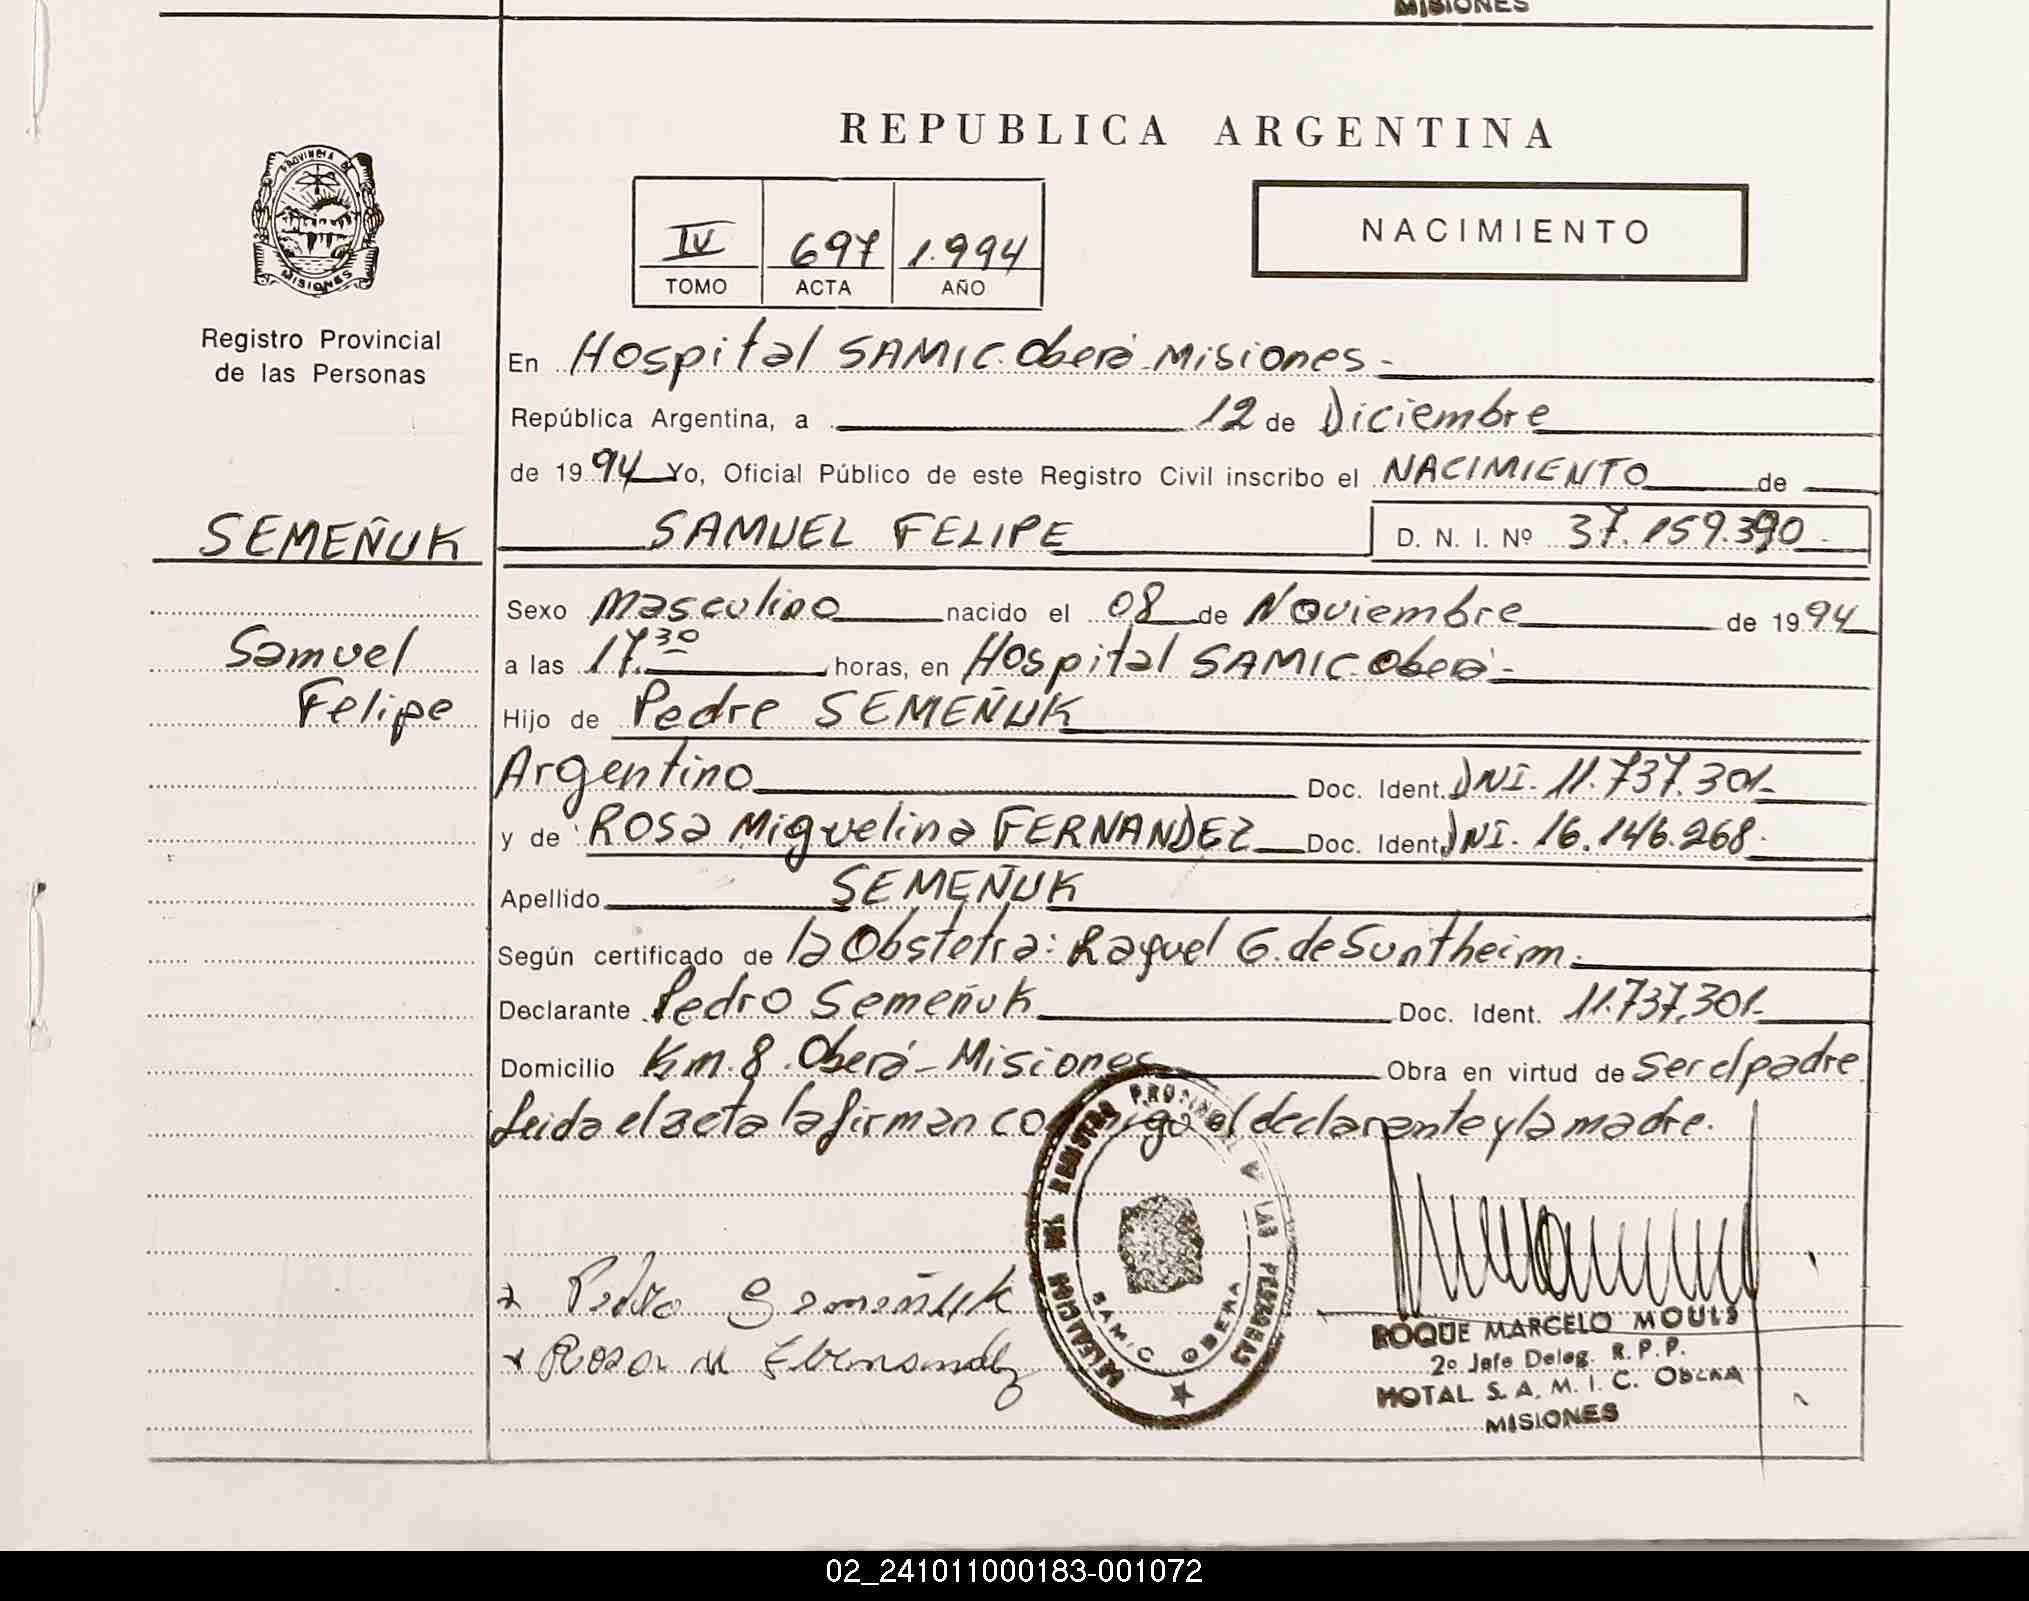 MISIONES
REPUBLICA ARGENTINA
PROVINCIA DE
MISIONES
IV 697 1.994
TOMO ACTA AÑO
NACIMIENTO
Registro Provincial
de las Personas
En Hospital SAMIC. Oberá-Misiones-
República Argentina, a 12 de Diciembre
de 1994 Yo, Oficial Público de este Registro Civil inscribo el NACIMIENTO de
SEMEÑUK SAMUEL FELIPE D. N. I. Nº 37.159.390-
Sexo Masculino nacido el 08 de Noviembre de 1994
Samuel
a las 17.30 horas, en Hospital SAMIC-Oberá-
Felipe
Hijo de Pedro SEMEÑUK
Argentino Doc. Ident. DNI. 11.737.301-
y de Rosa Miguelina FERNANDEZ Doc. Ident. DNI. 16.146.268.
Apellido SEMEÑUK
Según certificado de la Obstetra: Raquel G. de Suntheim.
Declarante Pedro Semeñuk Doc. Ident. 11.737.301-
Domicilio Km. 8. Oberá-Misiones Obra en virtud de ser el padre
Leida el acta la firman conmigo el declarante y la madre.
DELEGACION DEL REGISTRO PROVINCIAL DE LAS PERSONAS
SAMIC OBERA
x Pedro Semeñuk
x Rosa M Fernandez
ROQUE MARCELO MOULS
2º Jefe Deleg. R. P. P.
HOTAL S. A. M. I. C. OBERA
MISIONES
02_241011000183-001072